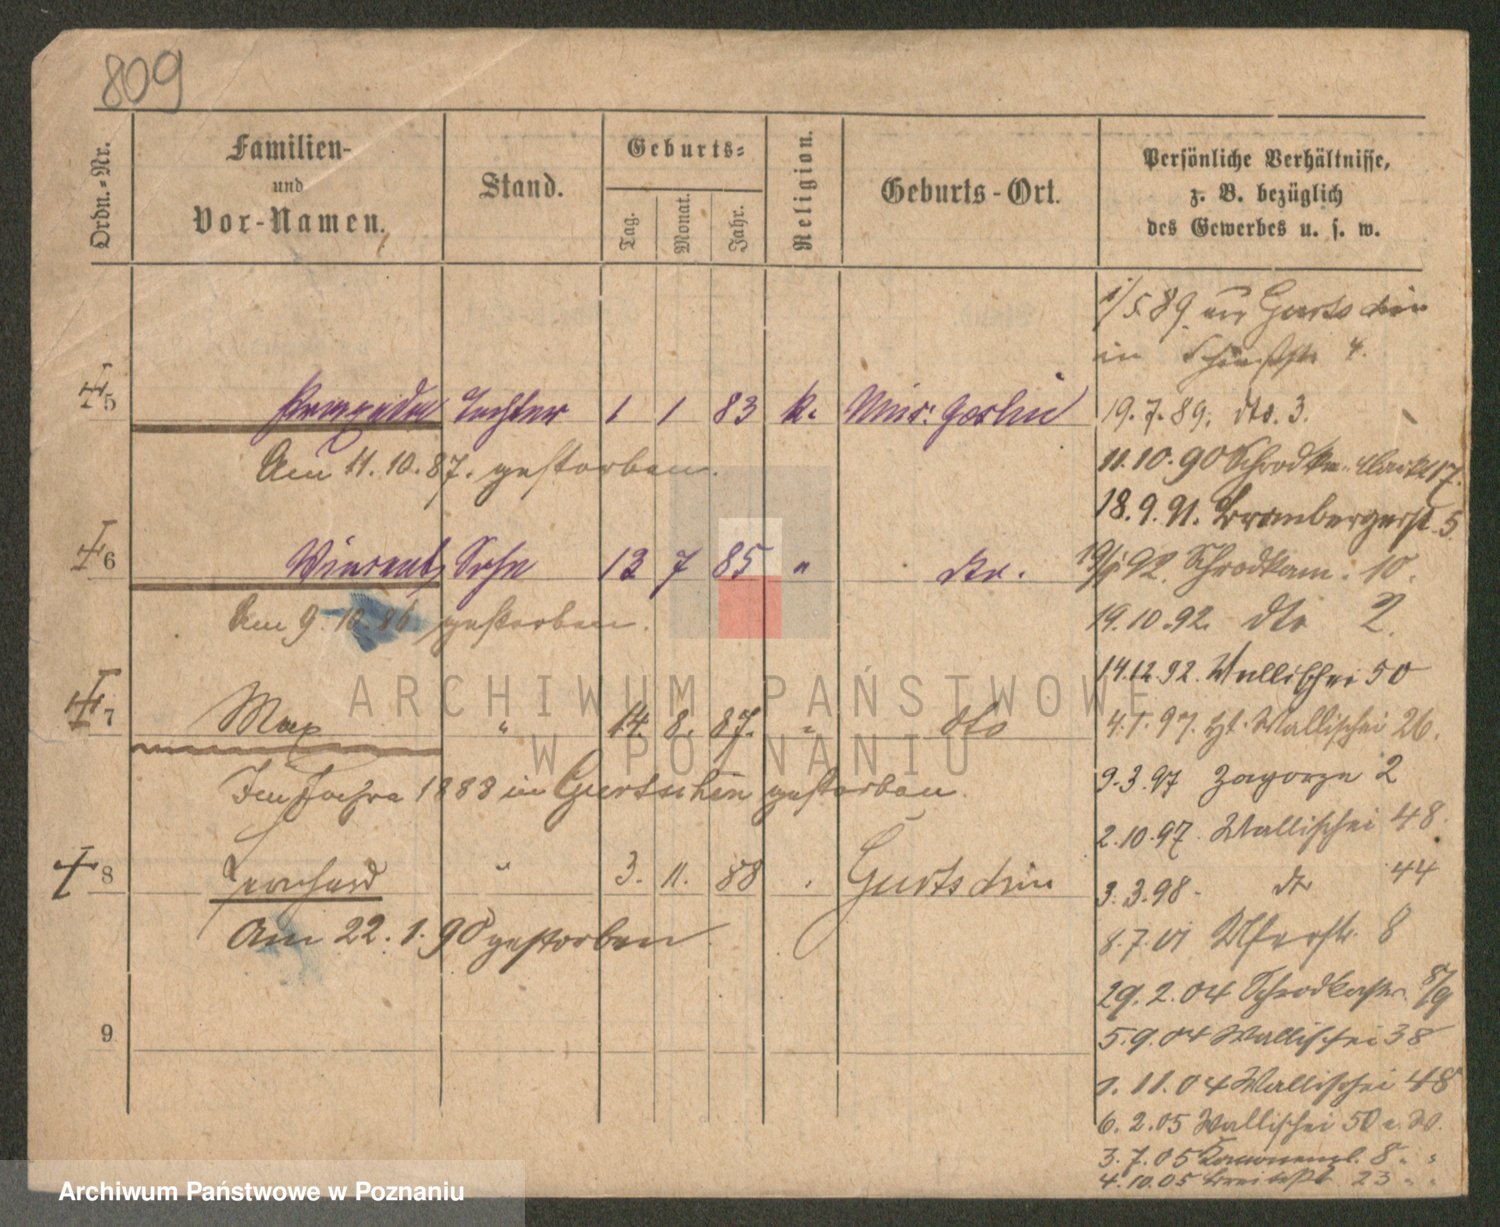 809
Ordn.-Nr.
Familien-
und
Vor-Namen.
Stand.
Geburts-
Tag.
Monat.
Jahr.
Religion.
Geburts-Ort.
Persönliche Verhältnisse,
z. B. bezüglich
des Gewerbes u. s. w.
1/5.89 aus Gurtschin
in 4.
5 Tochter 1 1 83 k. Gorlin
19.7.89. dto. 3.
Am 11.10.87. gestorben.
11.10.90 Schrodka 17.
18.9.91. Brombergerst. 5
6 Vincent Sohn 13 7 85 " do.
92. Schrodkam. 10.
Am 9.10.86 gestorben.
19.10.92. dto 2.
14.12.92. Wallischei 50
7 Max " 14. 8. 87. " dto
4.1.97. Wallischei 26.
9.3.97 Zagorze 2
Im Jahre 1888 in Gurtschin gestorben.
2.10.97. Wallischei 48.
8 Bernhard " 3. 11. 88 Gurtschin
3.3.98. dto 44
Am 22.1.90 gestorben
8.7.01 Uferstr. 8
29.2.04 Schrodkastr. 8/9
9.
5.9.04 Wallischei 38
1.11.04 Wallischei 48
6.2.05 Wallischei 50
3.7.05 8
4.10.05 Breitestr. 23
ARCHIWUM PAŃSTWOWE
W POZNANIU
Archiwum Państwowe w Poznaniu